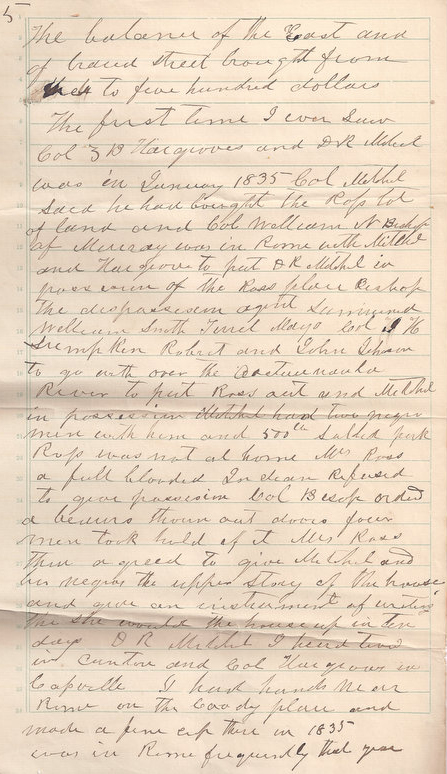 5
The balance of the East and
of braud street brought from
to five hundred dollars
The first time I ever Saw
Col Z B Hargroves and D R Mitchel
was in January 1835 Col Mitchel
Said he had bought the Ross lot
of land and Col William N Bishop
of Murray was in Rome with Mitchel
and Hargrove to put D R Mitchel in
possession of the Ross place Bishop
the dispossession agent Summoned
William Smith Terril Mayo Col H
Lumpkin Robert and John Johnson
to go with over the Oostanaula
River to put Ross out and Mitchel
in possession Mitchel had two negro
men with him and 500 lb Salted pork
Ross was not at home Mrs Ross
a full blooded Indian Refused
to give possession Col Bishop orded
a beaurs thoun out doors four
men took hold of it Mrs Ross
then agreed to give Mitchel and
his negros the upper Story of the house
and give an insturment of writing
She would the house up in ten
days D R Mitchel I heard lived
in Canton and Col Hargroves in
I had hands near
Rome on the Coody place and
made a fine crop there in 1835
was in Rome frequently that year